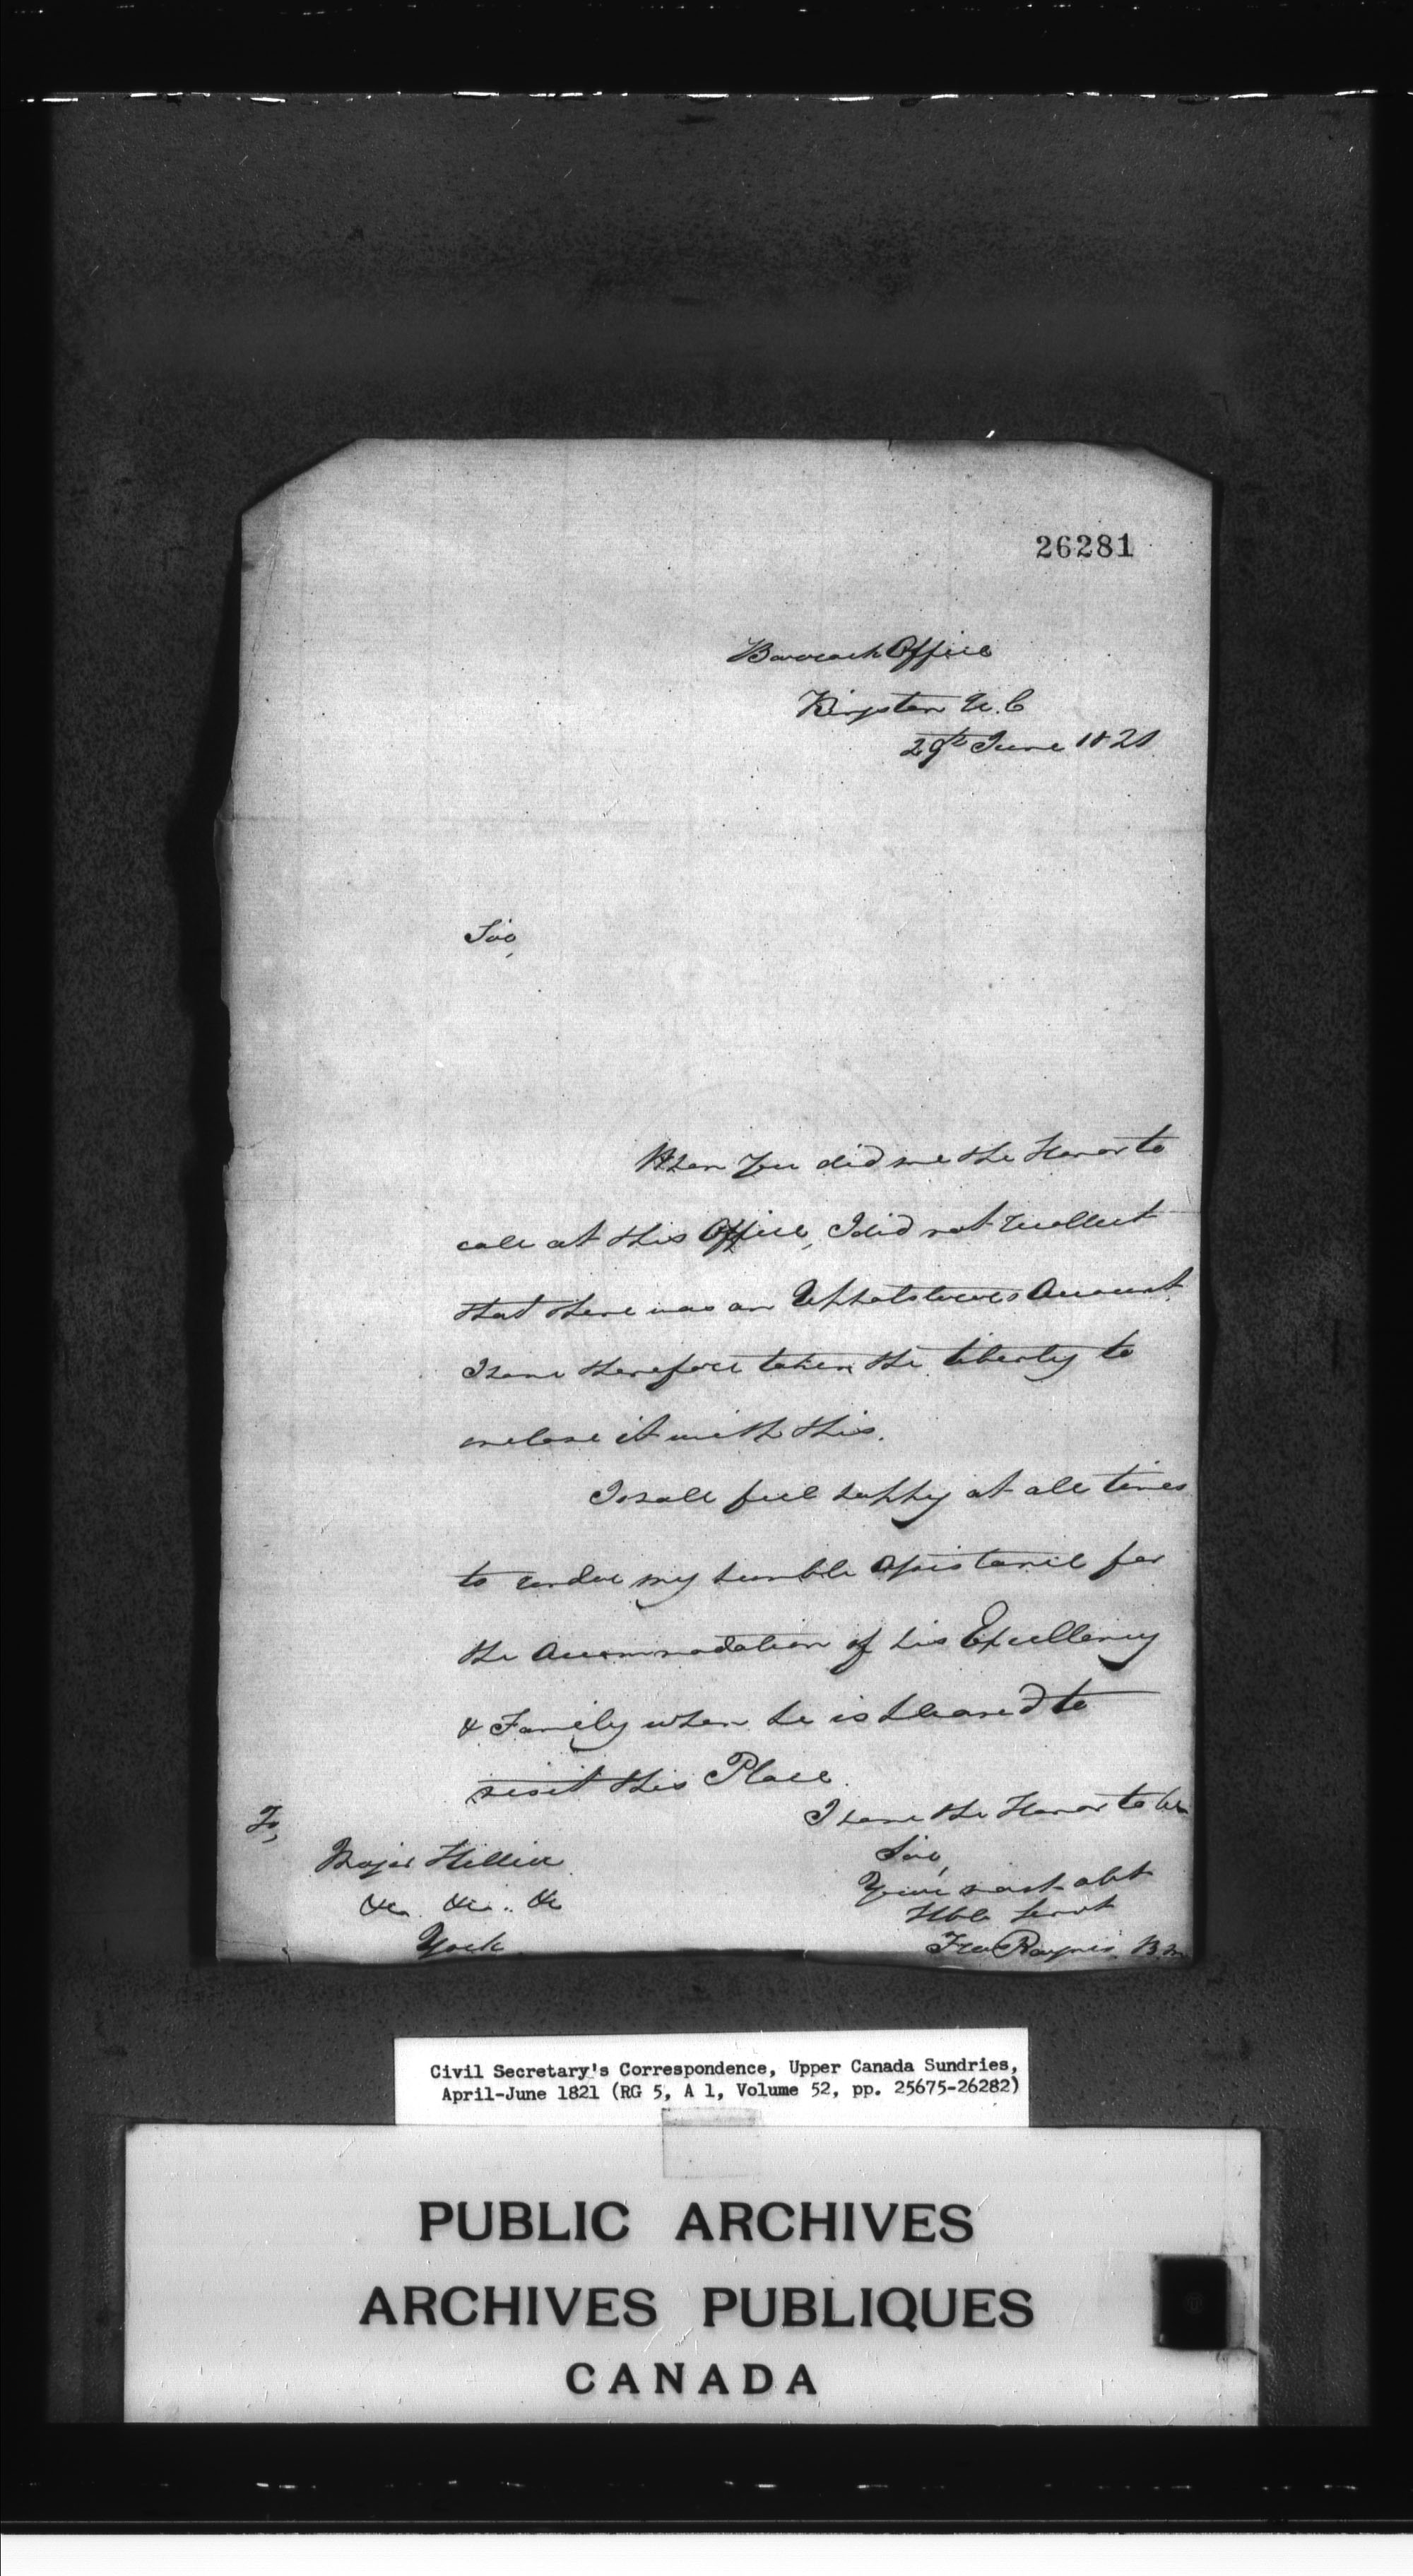 26281
Barrack Office
Kingston U.C
29th June 1821
Sir,
When You did me the Honor to
call at this Office, I did not recollect
that there was an Upholsterers Account
I have therefore taken the liberty to
enclose it with this.
I shall feel happy at all times
to render my humble Assistance for
the Accommodation of his Excellency
& Family when he is pleased to
visit this Place.
I have the Honor to be
Sir,
Your most obt
Hble Servt
Fras Raynes B.M.
To,
Major Hillier
&c. &c.. &c
York
Civil Secretary's Correspondence, Upper Canada Sundries,
April-June 1821 (RG 5, A 1, Volume 52, pp. 25675-26282)
PUBLIC ARCHIVES
ARCHIVES PUBLIQUES
CANADA